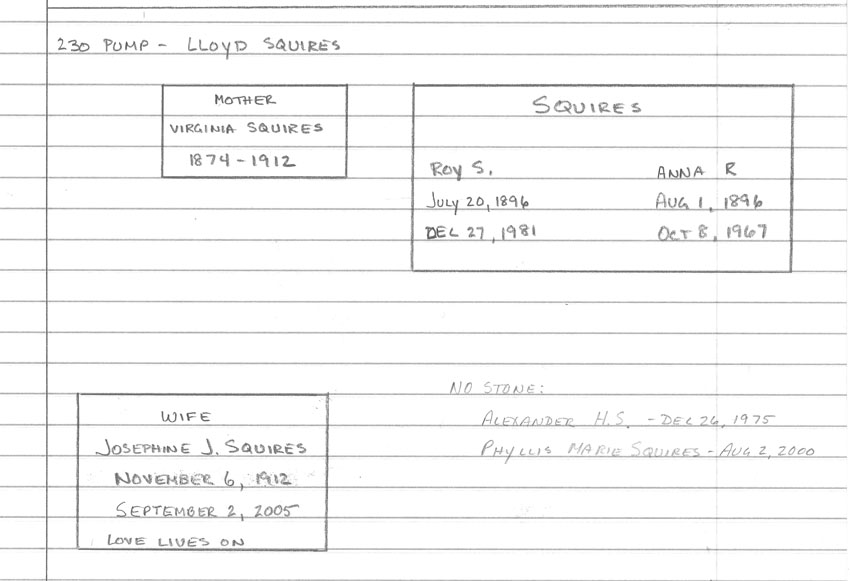 230 PUMP - LLOYD SQUIRES
MOTHER
VIRGINIA SQUIRES
1874-1912
SQUIRES
ROY S. ANNA R
JULY 20, 1896 AUG 1, 1896
DEC 27, 1981 OCT 8, 1967
NO STONE:
ALEXANDER H.S. - DEC 26, 1975
PHYLLIS MARIE SQUIRES - AUG 2, 2000
WIFE
JOSEPHINE J. SQUIRES
NOVEMBER 6, 1912
SEPTEMBER 2, 2005
LOVE LIVES ON